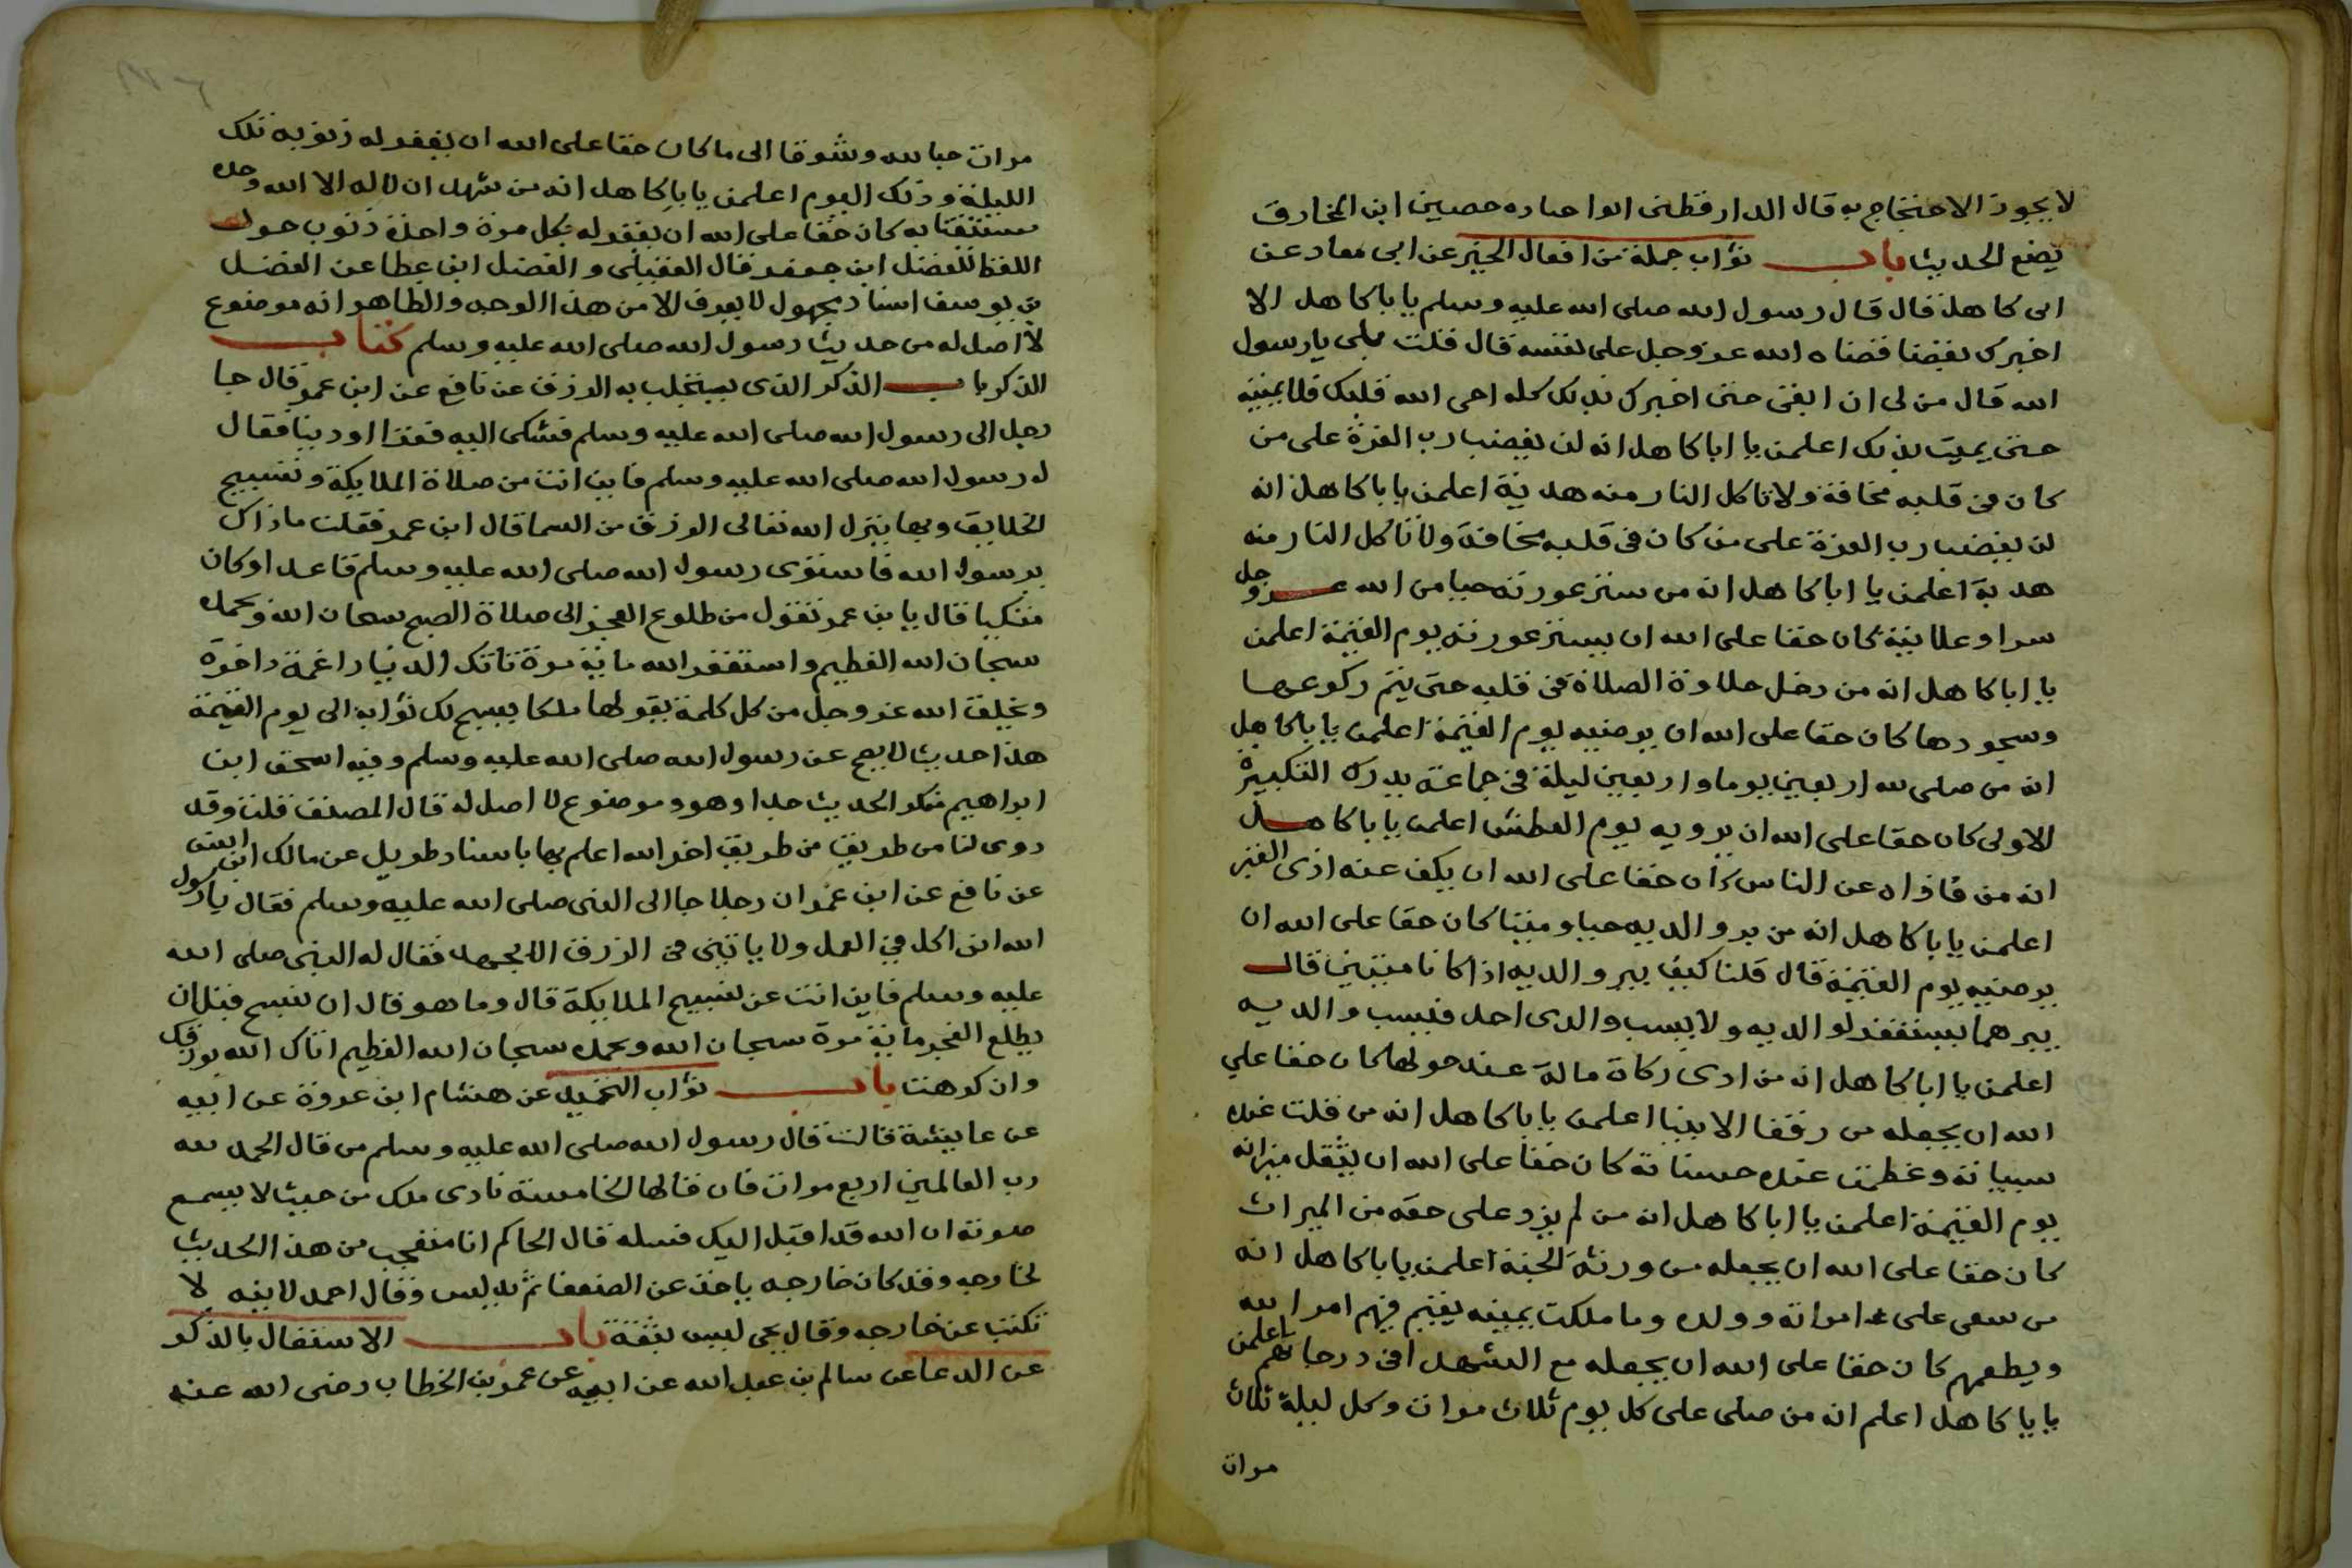 لا يجوز الاحتجاج به قال الدارقطنى ابوا جناده حصين ابن المخارق
يضع الحديث باب ثواب جملة من افعال الخير عن ابى معاد عن
ابى كاهل قال قال رسول الله صلى الله عليه وسلم يابا كاهل الا
اخبرك بقضا قضاه الله عز وجل على نفسه قال قلت بلى يا رسول
الله قال من لى ان ابقى حتى اخبرك بذلك كله احى الله قلبك فلا يميته
حتى يميت بدنك اعلمن يا ابا كاهل انه لن يغضب رب العزة على من
كان فى قلبه مخافة ولا تاكل النار منه هدبة اعلمن يابا كاهل انه
لن يغضب رب العزة على من كان فى قلبه مخافة ولا تاكل النار منه
هدبة اعلمن يا ابا كاهل انه من ستر عورته حيا من الله عز وجل
سرا وعلانية كان حقا على الله ان يستر عورته يوم القيمة اعلمن
يا ابا كاهل انه من دخل حلاوة الصلاة فى قلبه حتى يتم ركوعها
وسجودها كان حقا على الله ان يرضيه يوم القيمة اعلمن يابا كاهل
انه من صلى لله اربعين يوما واربعين ليلة فى جماعة يدرك التكبيرة
الاولى كان حقا على الله ان يرويه يوم العطش اعلمن يابا كاهل
انه من كف اذاه عن الناس كان حقا على الله ان يكف عنه اذى القبر
اعلمن يابا كاهل انه من بر والديه حيا وميتا كان حقا على الله ان
يرضيه يوم القيمة قال قلنا كيف يبر والديه اذا كانا ميتين قال
يبرهما يستغفر لوالديه ولا يسب والدى احد فيسب والديه
اعلمن يا ابا كاهل انه من ادى زكاة ماله عند حولها كان حقا على
الله ان يجعله من رفقا الانبيا اعلمن يابا كاهل انه من قلت عنده
سيياته وعظمت عنده حسناته كان حقا على الله ان يثقل ميزانه
يوم القيمة اعلمن يا ابا كاهل انه من لم يزد على حقه من الميراث
كان حقا على الله ان يجعله من ورثة الجنة اعلمن يابا كاهل انه
من سعى على امراته وولده وما ملكت يمينه يقيم فيهم امر الله
ويطعمهم كان حقا على الله ان يجعله مع الشهدا فى درجاتهم اعلمن
يابا كاهل اعلم انه من صلى على كل يوم ثلاث مرات وكل ليلة ثلاث
مرات
مرات حبا لله وشوقا الى ما كان حقا على الله ان يغفر له ذنوبه تلك
الليلة وذلك اليوم اعلمن يابا كاهل انه من شهد ان لا اله الا الله وحده
مستيقنا به كان حقا على الله ان يغفر له بكل مرة واحدة ذنوب حول
اللفظ للفضل ابن جعفر قال العقيلى والفضل ابن عطا عن الفضل
بن يوسف اسناد مجهول لا يعرف الا من هذا الوجه والظاهر انه موضوع
لا اصل له من حديث رسول الله صلى الله عليه وسلم كتاب
الذكر باب الذكر الذى يستجلب به الرزق عن نافع عن ابن عمر قال جا
رجل الى رسول الله صلى الله عليه وسلم فشكى اليه فقرا او دينا فقال
له رسول الله صلى الله عليه وسلم فاين انت من صلاة الملايكة وتسبيح
الخلايق وبها ينزل الله تعالى الرزق من السما قال ابن عمر فقلت ماذاك
يرسول الله فاستوى رسول الله صلى الله عليه وسلم قاعدا وكان
متكيا فقال يا بن عمر تقول من طلوع الفجر الى صلاة الصبح سبحان الله وبحمده
سبحان الله العظيم واستغفر الله ماية مرة تاتك الدنيا راغمة داخرة
ويخلق الله عز وجل من كل كلمة يقولها ملكا يسبح لك ثوابه الى يوم القيمة
هذا حديث لا يصح عن رسول الله صلى الله عليه وسلم وفيه اسحق ابن
ابراهيم منكر الحديث جدا وهو موضوع لا اصل له قال المصنف قلت وقد
روى لنا من طريق من طريق اخر الله اعلم بها باسناد طويل عن مالك ابن انس
عن نافع عن ابن عمر ان رجلا جا الى النبى صلى الله عليه وسلم فقال يا رسول
الله انى اكل فى العمل ولا ياتينى فى الرزق الا بجهد فقال له النبى صلى الله
عليه وسلم فاين انت عن تسبيح الملايكة قال وما هو قال ان تسبح قبل ان
يطلع الفجر ماية مرة سبحان الله وبحمده سبحان الله العظيم اتاك الله برزقك
وان كرهت باب ثواب التحميد عن هشام ابن عروة عن ابيه
عن عايشة قالت قال رسول الله صلى الله عليه وسلم من قال الحمد لله
رب العالمين اربع مرات فان قالها الخامسة نادى ملك من حيث لا يسمع
صوته ان الله قد اقبل اليك فسله قال الحاكم انا متعجب من هذا الحديث
لخارجه وقد كان خارجه ياخذ عن الضعفا ثم يدلس وقال احمد لابنه لا
تكتب عن خارجه وقال يحى ليس بثقة باب الاستغال بالذكر
عن الدعا عن سالم بن عبد الله عن ابيه عن عمر بن الخطاب رضى الله عنه